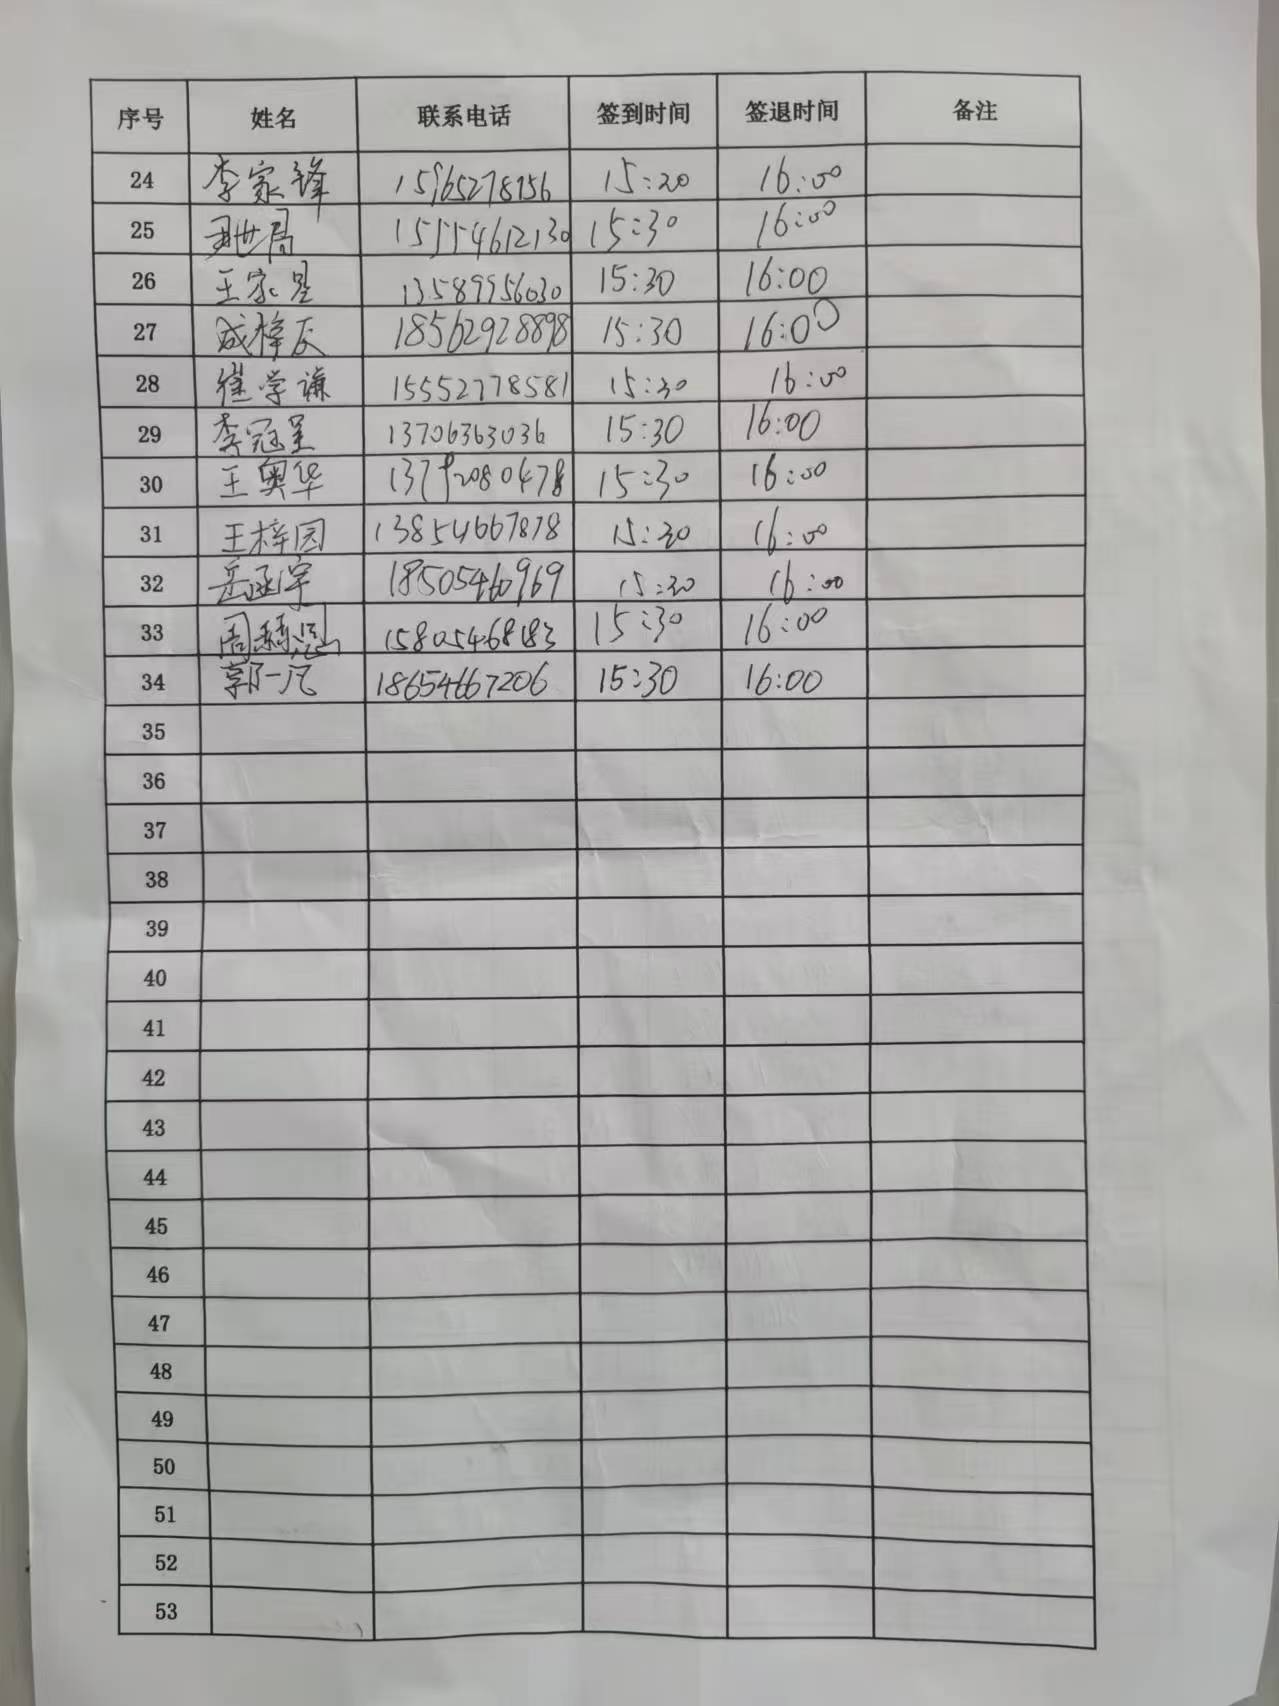 序号 姓名 联系电话 签到时间 签退时间 备注
24 李家锋 15965278156 15:20 16:00
25 世局 15554612130 15:30 16:00
26 王家星 13589956030 15:30 16:00
27 成梓辰 18562928898 15:30 16:00
28 崔学谦 15552778581 15:30 16:00
29 李冠呈 13706363036 15:30 16:00
30 王奥华 13792080478 15:30 16:00
31 王梓园 13854667878 15:30 16:00
32 岳涵宇 18505460969 15:30 16:00
33 周赫恩 15805468183 15:30 16:00
34 郭一凡 18654667206 15:30 16:00
35
36
37
38
39
40
41
42
43
44
45
46
47
48
49
50
51
52
53